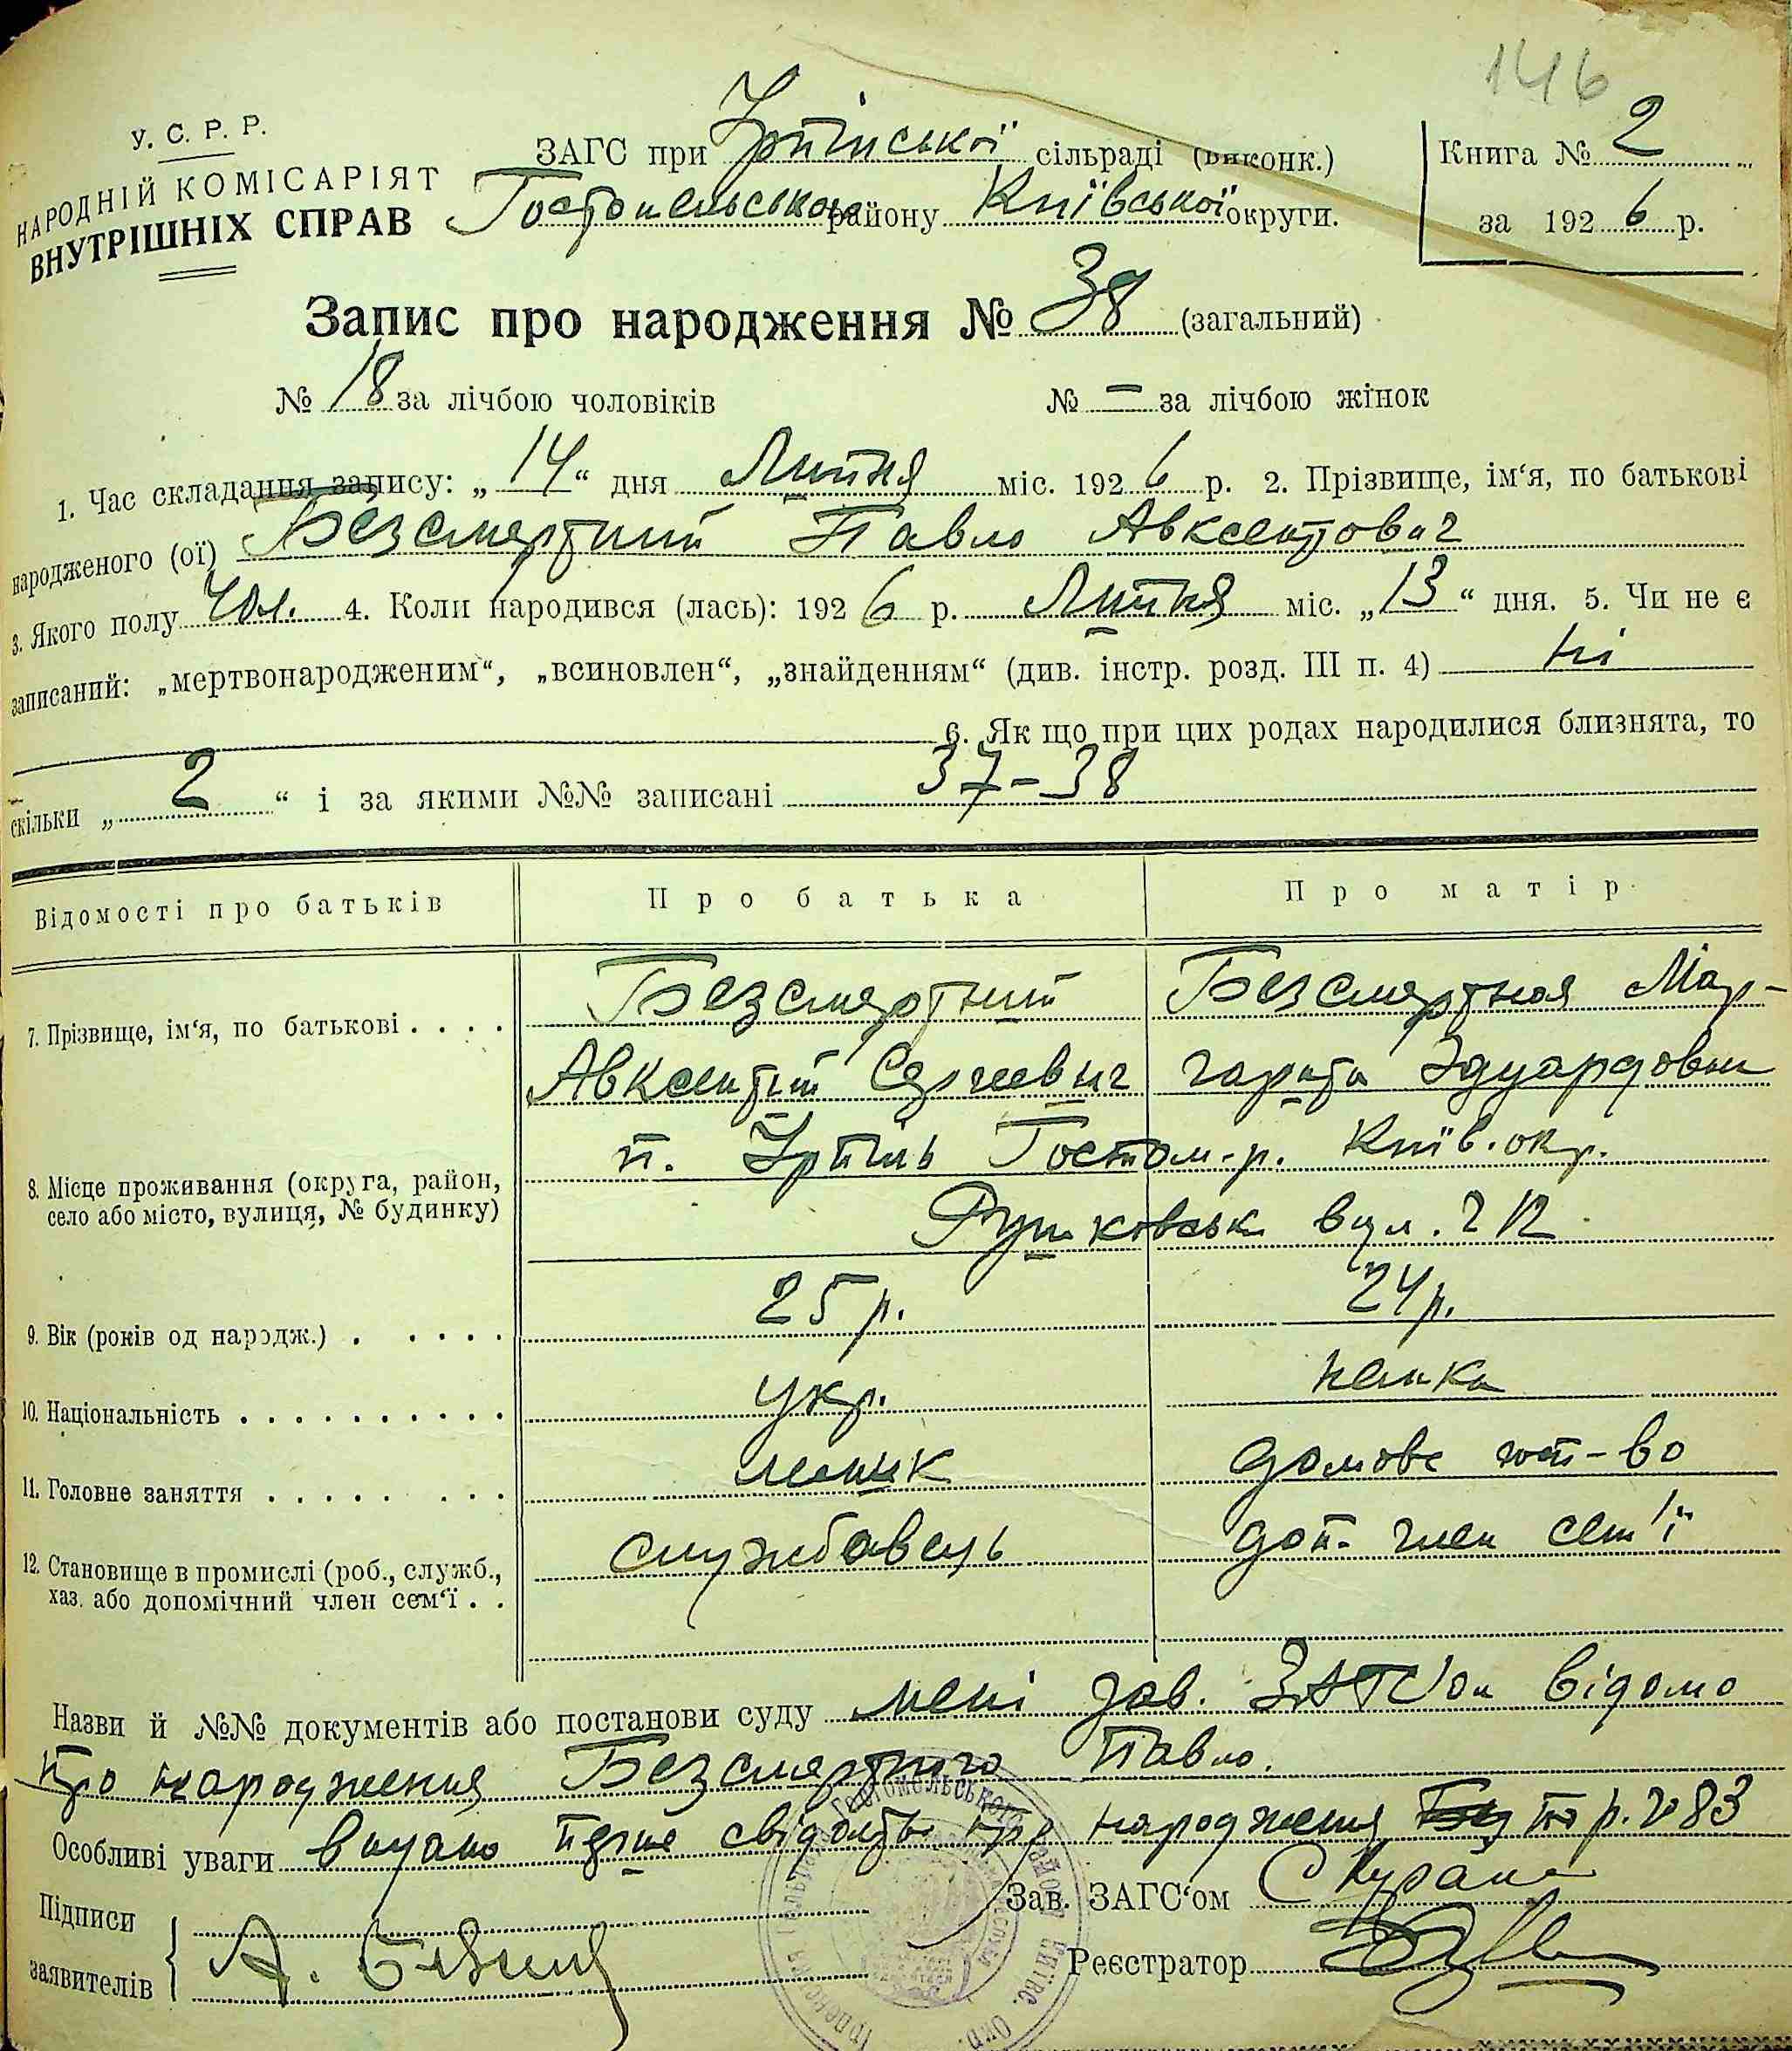 146
У. С. Р. Р.
НАРОДНІЙ КОМІСАРІЯТ
ВНУТРІШНІХ СПРАВ
ЗАГС при Ірпінської сільраді (виконк.)
Гостомельського району Київської округи.
Книга № 2
за 1926 р.
Запис про народження № 38 (загальний)
№ 18 за лічбою чоловіків № — за лічбою жінок
1. Час складання запису: „14“ дня Липня міс. 1926 р. 2. Прізвище, ім‘я, по батькові
народженого (ої) Безсмертний Павло Авксентович
3. Якого полу чол. 4. Коли народився (лась): 1926 р. Липня міс. „13“ дня. 5. Чи не є
записаний: „мертвонародженим“, „всиновлен“, „знайденням“ (див. інстр. розд. III п. 4) ні
6. Як що при цих родах народилися близнята, то
скільки „2“ і за якими №№ записані 37-38
Відомості про батьків Про батька Про матір
7. Прізвище, ім‘я, по батькові . . . . Безсмертний Безсмертная Мар-
Авксентий Сергиевич гарита Эдуардовна
8. Місце проживання (округа, район, п. Ірпінь Гостом-р. Київ. окр.
село або місто, вулиця, № будинку) вул. 12
9. Вік (років од народж.) . . . . . 25 р. 24 р.
10. Національність . . . . . . . . . . укр. немка
11. Головне заняття . . . . . . . . домове госп-во
12. Становище в промислі (роб., служб., службовець доп. член сем'ї
хаз. або допомічний член сем‘ї . .
Назви й №№ документів або постанови суду мені зав. ЗАГС'ом відомо
про народження Безсмертного Павло.
Особливі уваги видано перше свідоцтво про народження р. № 83
Підписи
заявителів
Зав. ЗАГС‘ом
Реєстратор